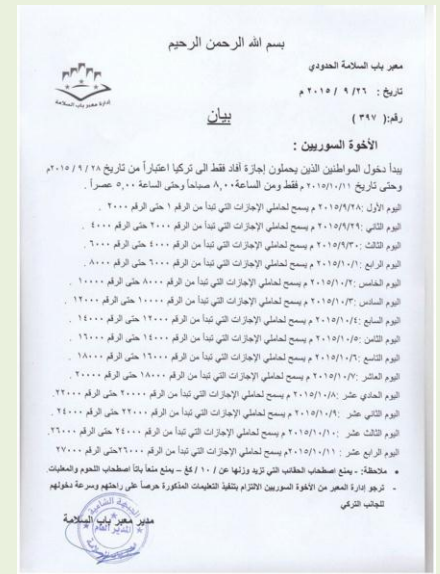 بسم الله الرحمن الرحيم
معبر باب السلامة الحدودي
إدارة معبر باب السلامة
تاريخ : ٢٦/ ٩ / ٢٠١٥ م
رقم:( ٣٩٧ )
بيان
الأخوة السوريين :
يبدأ دخول المواطنين الذين يحملون إجازة أفاد فقط الى تركيا اعتباراً من تاريخ ٢٨ / ٩ / ٢٠١٥م
وحتى تاريخ ٢٠١٥/١٠/١١ م فقط ومن الساعة ٨,٠٠ صباحاً وحتى الساعة ٥,٠٠ عصراً .
اليوم الأول :٢٠١٥/٩/٢٨ م يسمح لحاملي الإجازات التي تبدأ من الرقم ١ حتى الرقم ٢٠٠٠ .
اليوم الثاني :٢٠١٥/٩/٢٩ م يسمح لحاملي الإجازات التي تبدأ من الرقم ٢٠٠٠ حتى الرقم ٤٠٠٠ .
اليوم الثالث :٢٠١٥/٩/٣٠ م يسمح لحاملي الإجازات التي تبدأ من الرقم ٤٠٠٠ حتى الرقم ٦٠٠٠ .
اليوم الرابع :٢٠١٥/١٠/١ م يسمح لحاملي الإجازات التي تبدأ من الرقم ٦٠٠٠ حتى الرقم ٨٠٠٠ .
اليوم الخامس :٢٠١٥/١٠/٢ م يسمح لحاملي الإجازات التي تبدأ من الرقم ٨٠٠٠ حتى الرقم ١٠٠٠٠ .
اليوم السادس :٢٠١٥/١٠/٣ م يسمح لحاملي الإجازات التي تبدأ من الرقم ١٠٠٠٠ حتى الرقم ١٢٠٠٠ .
اليوم السابع :٢٠١٥/١٠/٤ م يسمح لحاملي الإجازات التي تبدأ من الرقم ١٢٠٠٠ حتى الرقم ١٤٠٠٠ .
اليوم الثامن :٢٠١٥/١٠/٥ م يسمح لحاملي الإجازات التي تبدأ من الرقم ١٤٠٠٠ حتى الرقم ١٦٠٠٠ .
اليوم التاسع :٢٠١٥/١٠/٦ م يسمح لحاملي الإجازات التي تبدأ من الرقم ١٦٠٠٠ حتى الرقم ١٨٠٠٠ .
اليوم العاشر :٢٠١٥/١٠/٧ م يسمح لحاملي الإجازات التي تبدأ من الرقم ١٨٠٠٠ حتى الرقم ٢٠٠٠٠ .
اليوم الحادي عشر :٢٠١٥/١٠/٨ م يسمح لحاملي الإجازات التي تبدأ من الرقم ٢٠٠٠٠ حتى الرقم ٢٢٠٠٠.
اليوم الثاني عشر :٢٠١٥/١٠/٩ م يسمح لحاملي الإجازات التي تبدأ من الرقم ٢٢٠٠٠ حتى الرقم ٢٤٠٠٠ .
اليوم الثالث عشر :٢٠١٥/١٠/١٠ م يسمح لحاملي الإجازات التي تبدأ من الرقم ٢٤٠٠٠ حتى الرقم ٢٦٠٠٠.
اليوم الرابع عشر :٢٠١٥/١٠/١١م يسمح لحاملي الإجازات التي تبدأ من الرقم ٢٦٠٠٠حتى الرقم ٢٧٠٠٠
• ملاحظة: - يمنع اصطحاب الحقائب التي تزيد وزنها عن / ١٠ / كغ – يمنع منعاً باتاً اصطحاب اللحوم والمعلبات.
- ترجو إدارة المعبر من الأخوة السوريين الالتزام بتنفيذ التعليمات المذكورة حرصاً على راحتهم وسرعة دخولهم
للجانب التركي
مدير معبر باب السلامة
الجبهة الشامية
المدير العام